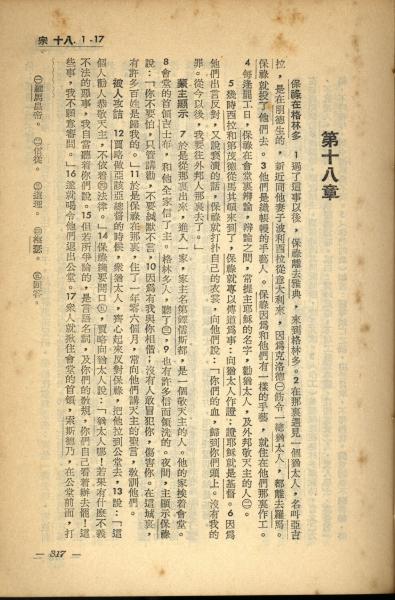 宗十八. 1-17
第十八章
保祿在格林多　1過了這事以後，保祿離去雅典，來到格林多。2在那裏遇見一個猶太人，名叫亞吉
拉，是在朋德生的，新近同他妻子波利西拉從意大利來，因爲克洛德㊀飭令一總猶太人，都離去羅馬。
保祿就投了他們去。3他們是織帳幔的手藝人。保祿因爲和他們有一樣的手藝，就住在他們那裏作工。
4每逢罷工日，保祿在會堂裏辯論，辯論之間，常提主耶穌的名字，勸猶太人，及外邦敬天主的人㊁。
5幾時西拉和第茂德從馬其頓來到了，保祿就專以傳道爲事：向猶太人作證：證耶穌就是基督。6因爲
他們出言反對，又說褻瀆的話，保祿就打扑自己的衣裳，向他們說：「你們的血，歸到你們頭上。沒有我的
罪。從今以後，我要往外邦人那裏去了。」
蒙主顯示　7於是從那裏出來，進入一家，家主名第鐸儒斯都，是一個敬天主的人。他的家挨着會堂。
8會堂的首領吉士布，和他全家信了主。格林多人，聽了㊂，9也有許多信而領洗的。夜間，主顯示保祿
說：「你不要怕，只管講勸，不要緘默不言，10因爲有我與你相偕；沒有人敢冒犯你，傷害你。在這城裏，
有許多百姓是歸我的。」11於是保祿在那裏，住了一年零六個月，常向他們講天主的聖言，敎訓他們。
被人攻詰　12賈略做亞該亞總督的時候，衆猶太人，齊心起來反對保祿，把他拉到公堂去，13說：「這
個人勸人恭敬天主，不依着㊃法律。」14保祿纔要開口㊄，賈略向猶太人說：「猶太人哪！若果有什麽不義
不法的惡事，我自當聽着你們說。15但若所爭論的，是言語名詞，及你們的敎規，你們自己看着辦去罷！這
些事，我不願意審問。」16遂就喝令他們退出公堂。17衆人就揪住會堂的首領，索斯德乃，在公堂前面，打
㊀羅馬皇帝。　㊁信從。　㊂道理。　㊃梅瑟。　㊄回答。
— 317 —